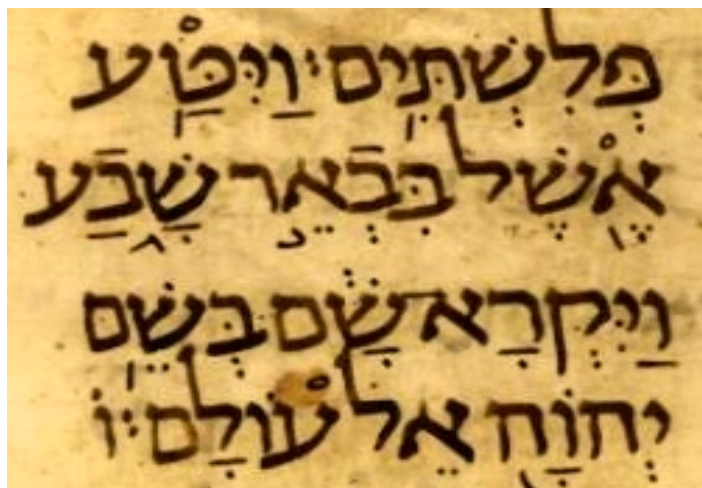 פְּלִשְׁתִּֽים׃ וַיִּטַּ֥ע
אֶ֖שֶׁל בִּבְאֵ֣ר שָׁ֑בַע
וַיִּקְרָא־שָׁ֔ם בְּשֵׁ֥ם
יְהוָ֖ה אֵל עוֹלָם׃ ו